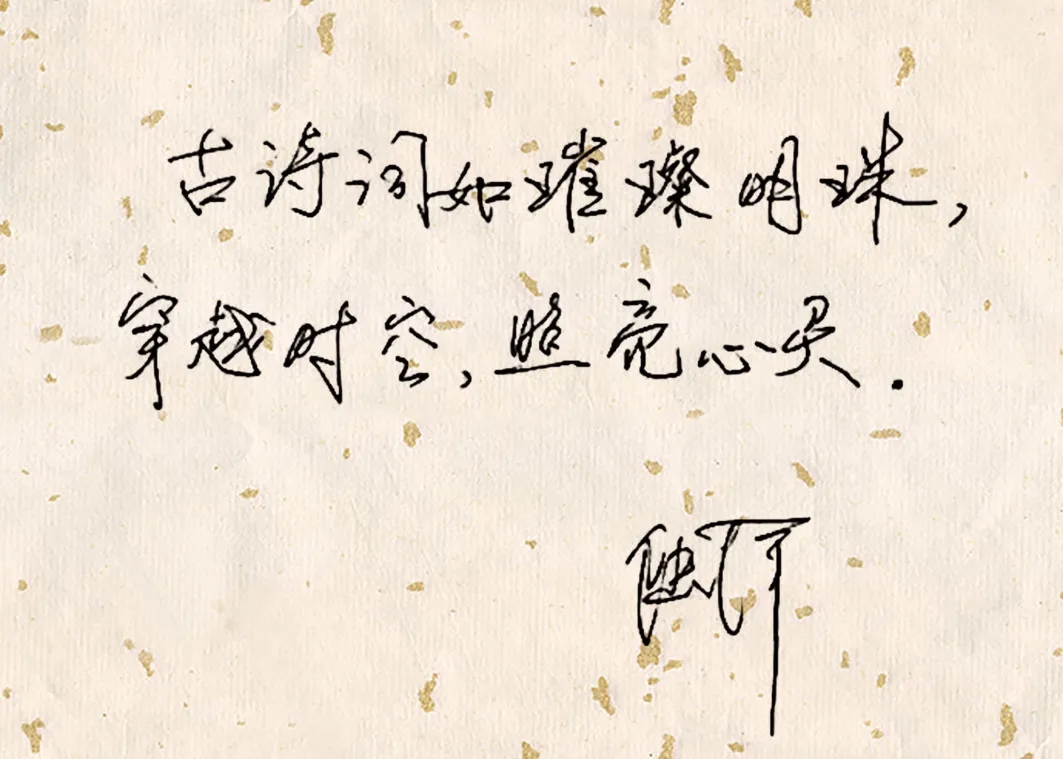 古诗词如璀璨明珠，
穿越时空，照亮心灵.